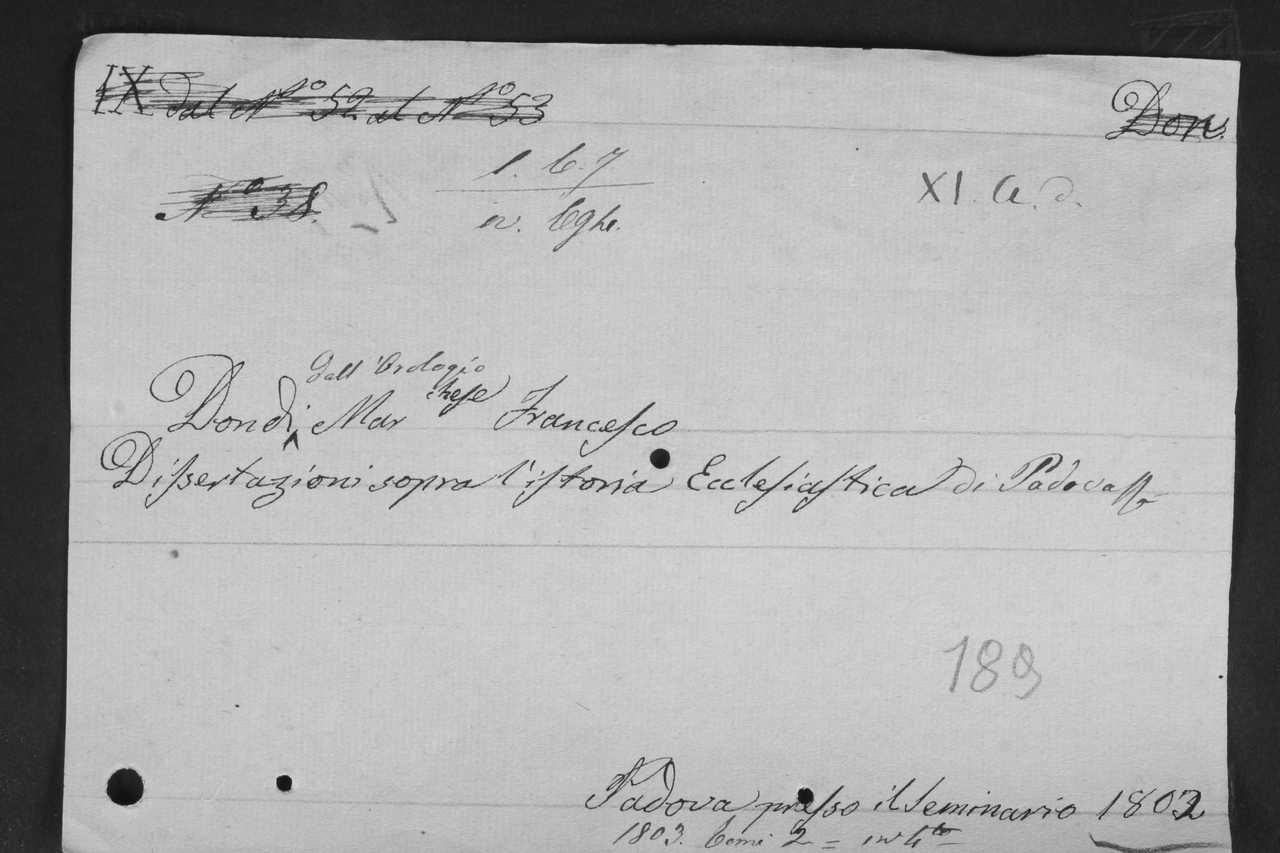 IX dal Nº 52 al Nº 53
Don.
Nº 38.
1. C. 7
XI. a. d.
Dondi dall'Orologio Marchese Francesco
Dissertazioni sopra l'istoria Ecclesiastica di Padova
189
Padova presso il Seminario 1802
1803. tomi 2 = in 4to